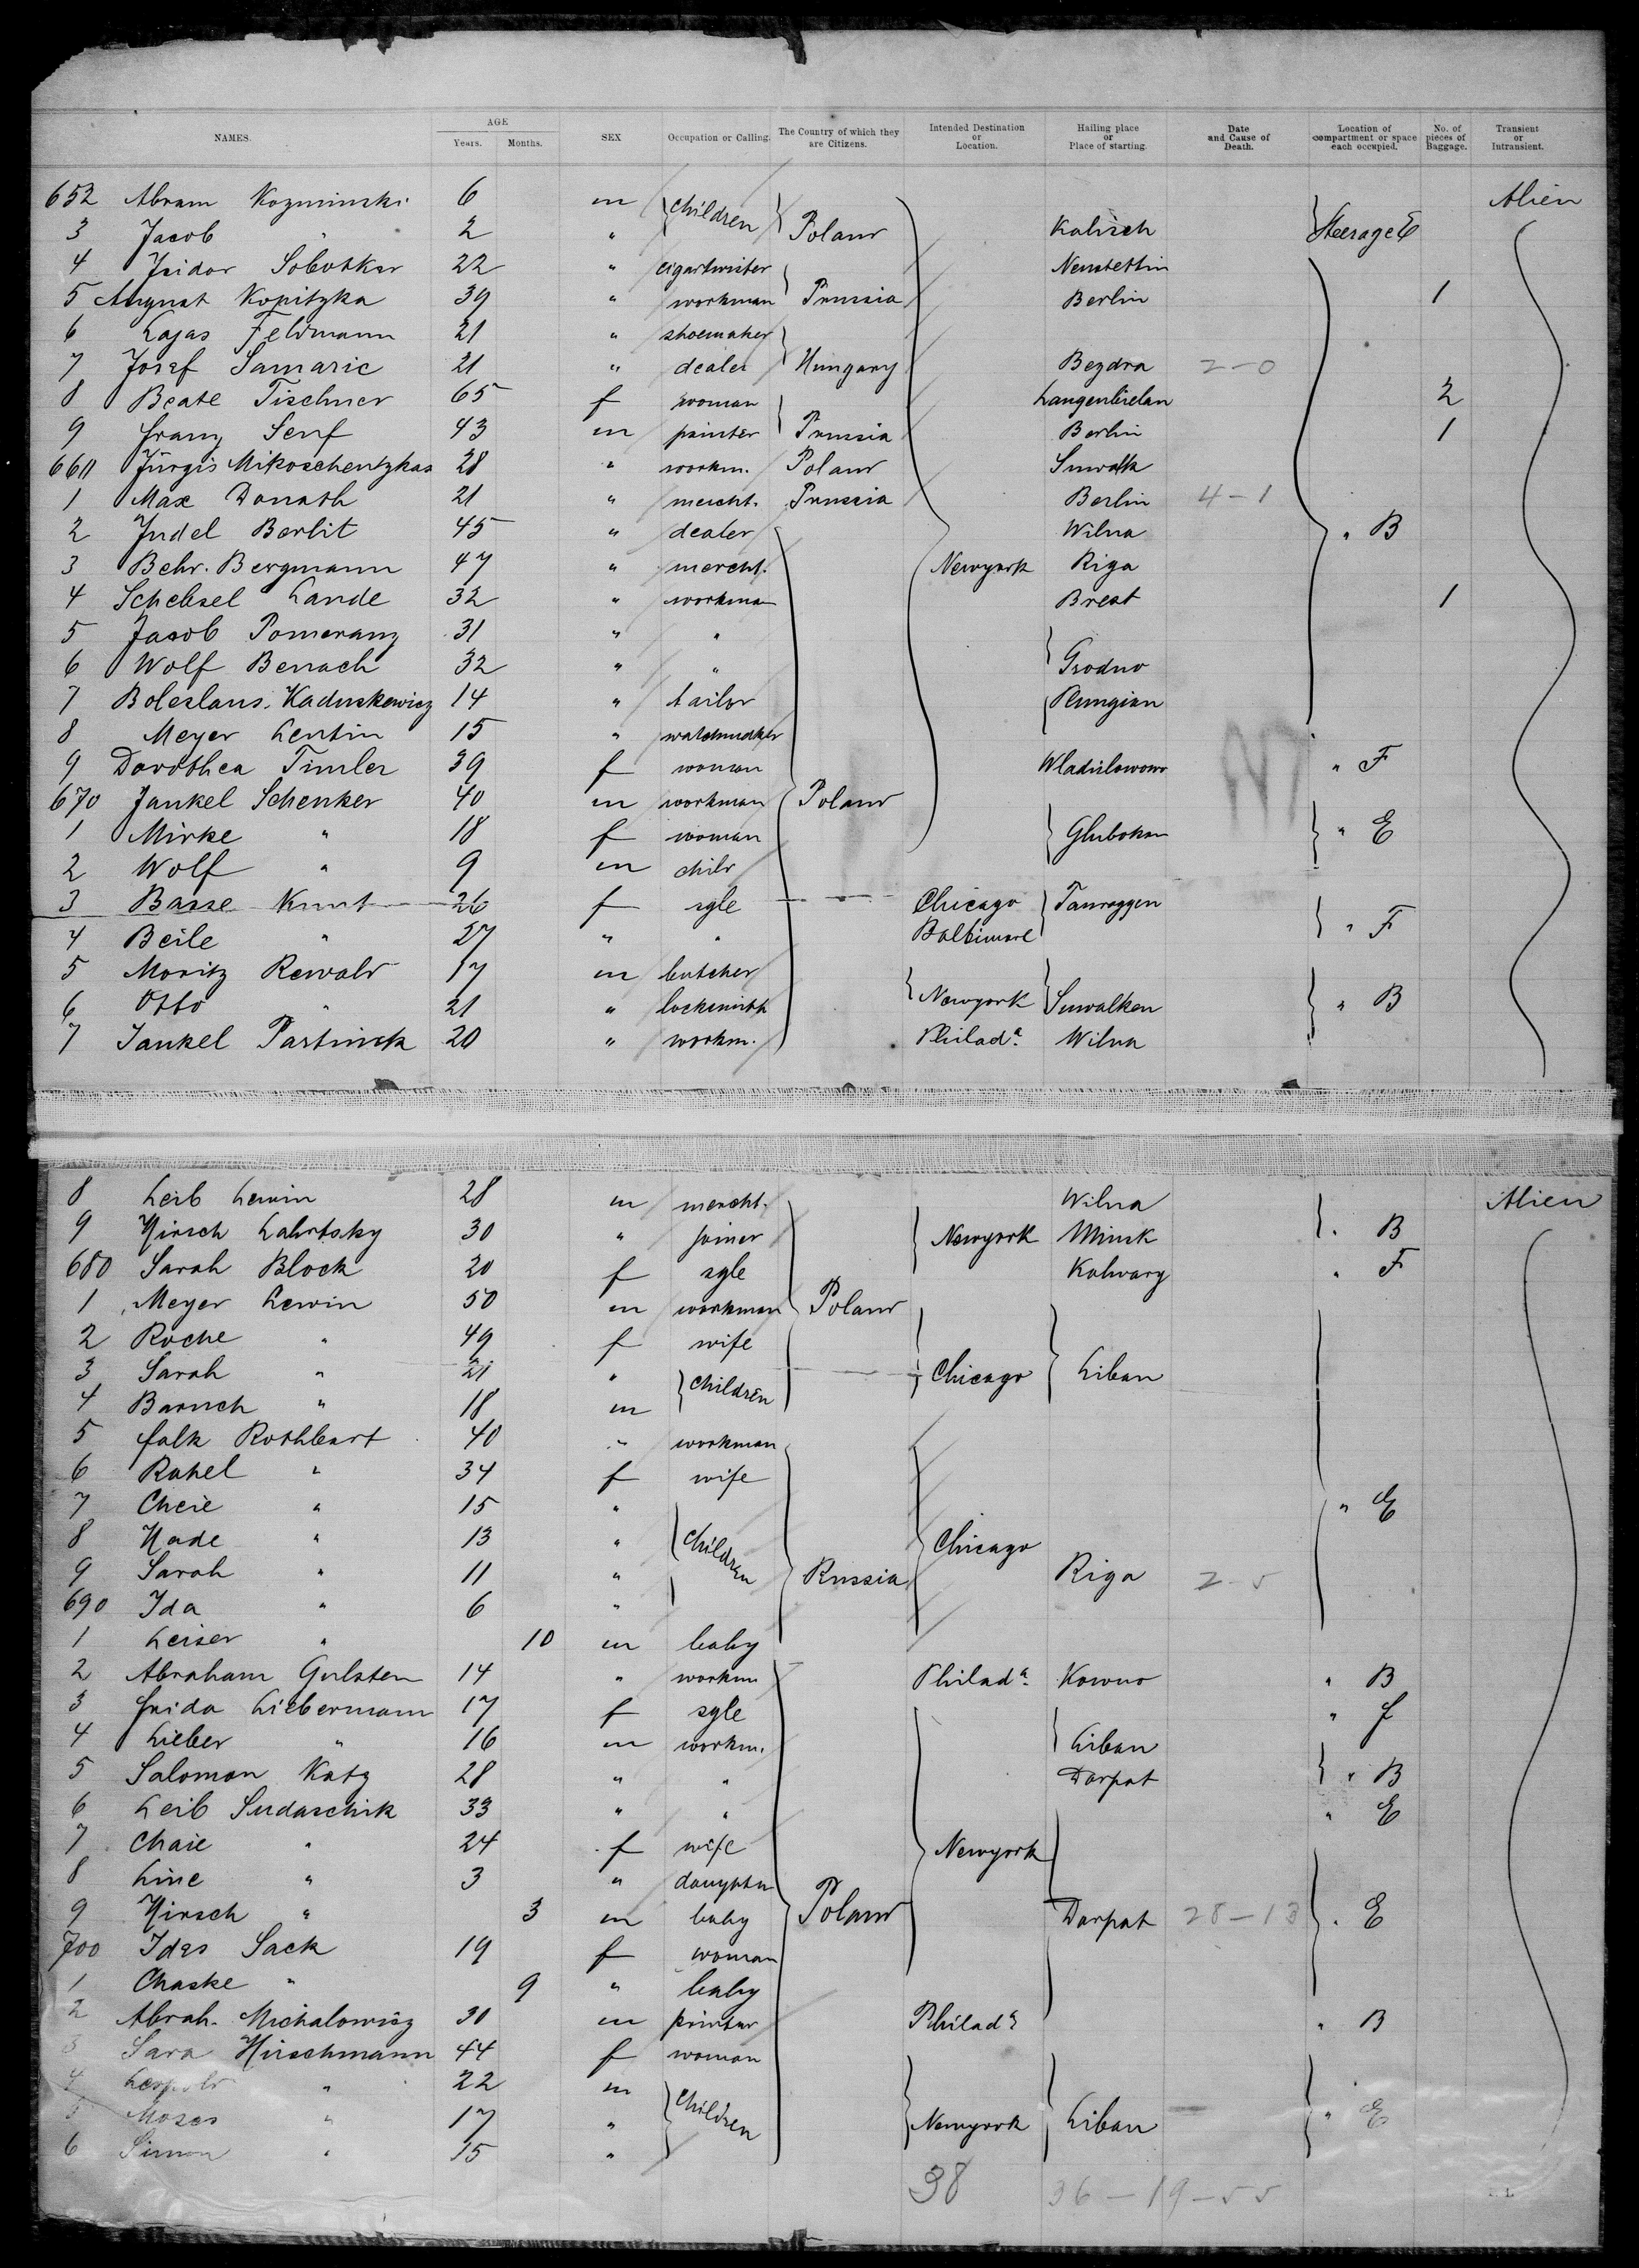 NAMES. AGE Years. Months. SEX Occupation or Calling. The Country of which they are Citizens. Intended Destination or Location. Hailing place or Place of starting. Date and Cause of Death. Location of compartment or space each occupied. No. of pieces of Baggage. Transient or Intransient.
652 Abram Kozminski 6 m children Alien
3 Jacob " 2 " Poland Kalisch Steerage E
4 Isidor Sobotker 22 " cigartwister Neustettin
5 August Kopitzka 39 " workman Prussia Berlin 1
6 Lajas Feldmann 21 " shoemaker
7 Josef Samaric 21 " dealer Hungary Bezdra 2-0
8 Beate Tischner 65 f woman Langenbielau 2
9 Franz Senf 43 m painter Prussia Berlin 1
660 Jürgis Mikoschentzkas 28 " workm. Poland Suwalk
1 Max Donath 21 " mercht. Prussia Berlin 4-1
2 Judel Berlit 45 " dealer Wilna " B
3 Behr. Bergmann 47 " mercht. Newyork Riga
4 Schebsel Lande 32 " workman Brest 1
5 Jacob Pomeranz 31 " "
6 Wolf Benach 32 " " Grodno
7 Boleslaus Kaduskewicz 14 " tailor Plungian
8 Meyer Lentin 15 " watchmaker
9 Dorothea Timler 39 f woman " F
670 Jankel Schenker 40 m workman Poland
1 Mirke " 18 f woman Glubokan " E
2 Wolf " 9 m child
3 Basse Kunt 26 f sgle Chicago Tauroggen
4 Beile " 27 " " Baltimore " F
5 Moritz Rewald 17 m butcher
6 Otto " 21 " locksmith Newyork Suwalken " B
7 Jankel Partnick 20 " workm. Philada. Wilna
8 Leib Lewin 28 m mercht. Wilna Alien
9 Hirsch Lahrtsky 30 " joiner Newyork Minsk " B
680 Sarah Block 20 f sgle Kalwary " F
1 Meyer Lewin 50 m workman Poland
2 Roche " 49 f wife
3 Sarah " 21 " children Chicago Libau
4 Baruch " 18 m
5 Falk Rothbart 40 " workman
6 Rahel " 34 f wife
7 Cheie " 15 " " E
8 Hade " 13 " children Chicago
9 Sarah " 11 " Russia Riga 2-5
690 Ida " 6 "
1 Leiser " 10 m baby
2 Abraham Gulsten 14 " workm Philada. Kowno " B
3 Frida Liebermann 17 f sgle " f
4 Lieber " 16 m workm. Libau
5 Salomon Katz 28 " " Dorpat " B
6 Leib Sudaschik 33 " " " E
7 Chaie " 24 f wife Newyork
8 Line " 3 " daughter
9 Hirsch " 3 m baby Poland Dorpat 28-13 " E
700 Ides Sack 19 f woman
1 Chaske " 9 " baby
2 Abrah. Michalowicz 30 m printer Philada " B
3 Sara Hirschmann 44 f woman
4 Leopold " 22 m children
5 Moses " 17 " Newyork Libau " E
6 Simon " 15 "
38 36-19-55